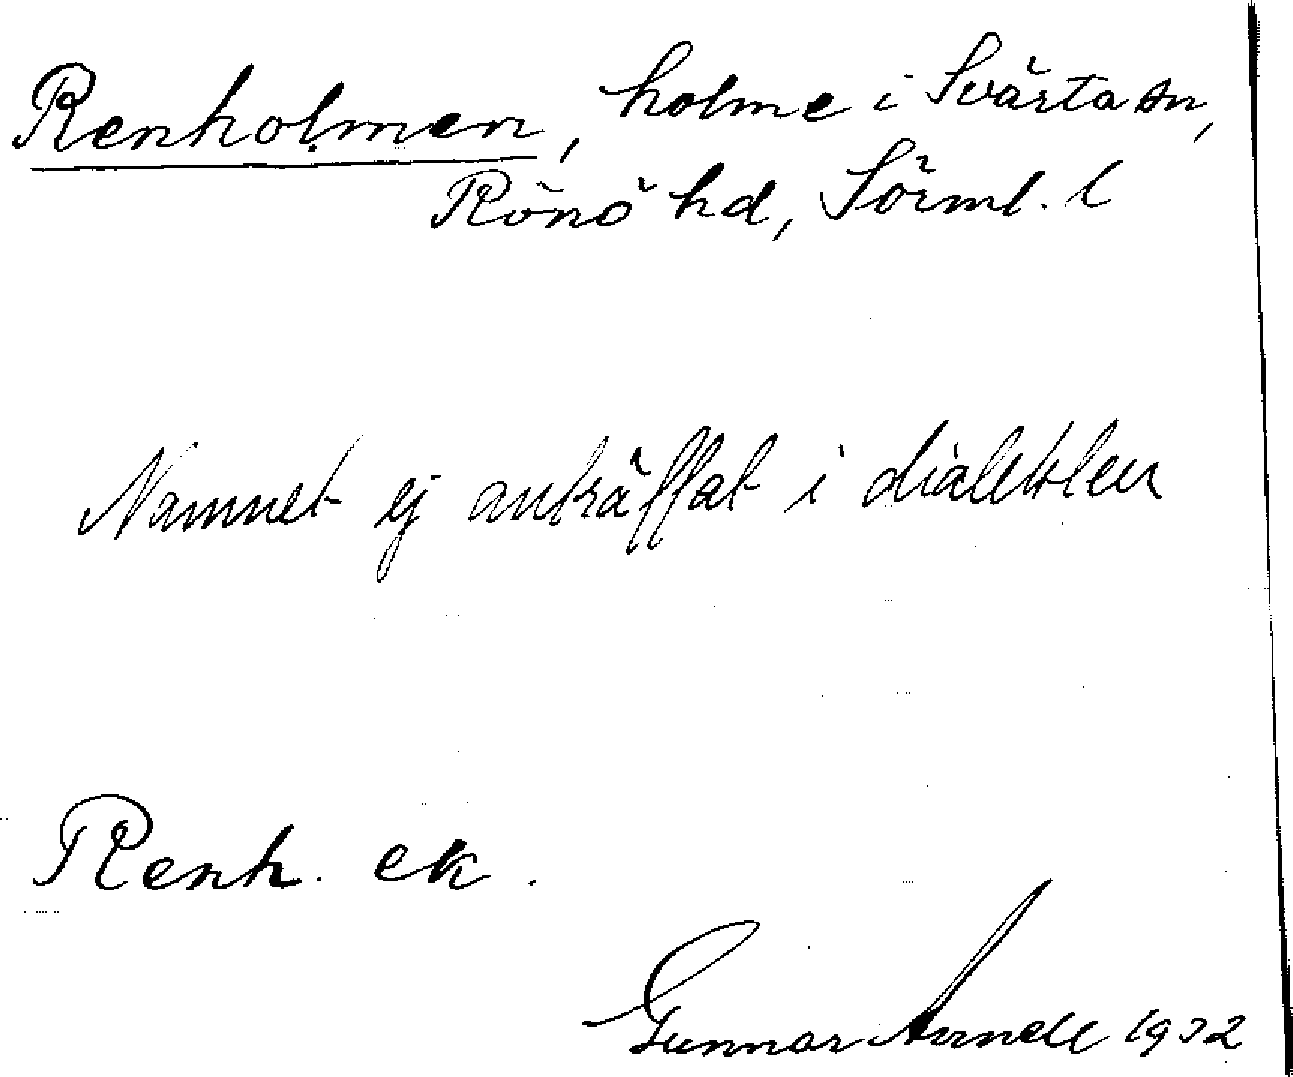 Renholmen, holme i Svärta sn,
Rönö hd, Sörml. l
Namnet ej anträffat i dialekten
Renh. ek.
Gunnar 1932